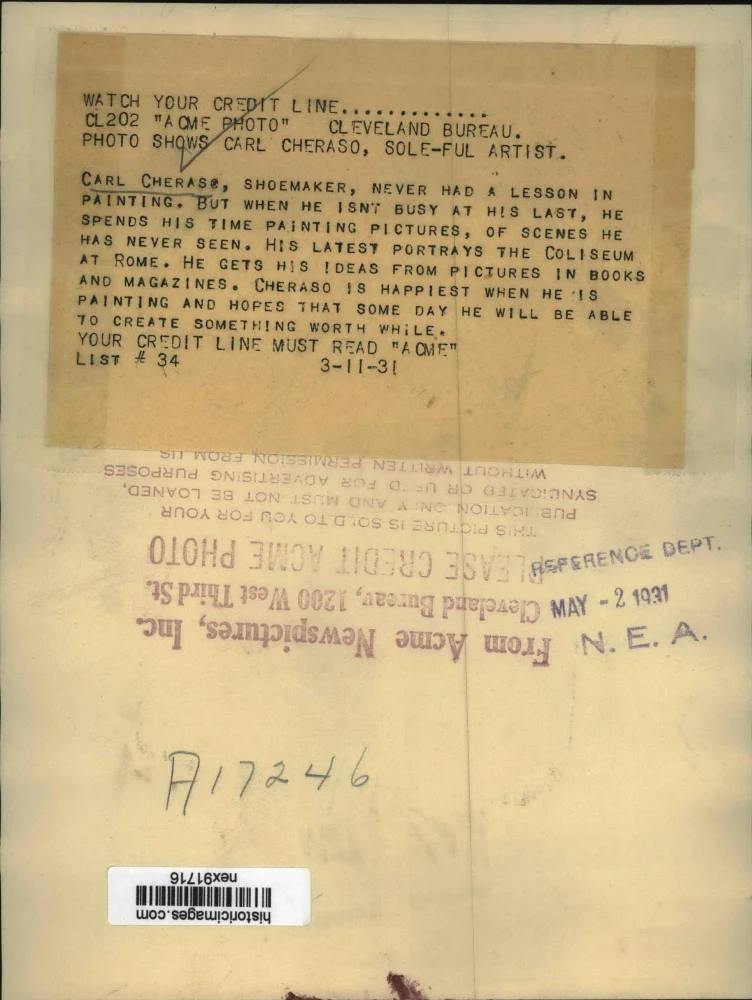 WATCH YOUR CREDIT LINE.............
CL202 "ACME PHOTO" CLEVELAND BUREAU.
PHOTO SHOWS CARL CHERASO, SOLE-FUL ARTIST.
CARL CHERASO, SHOEMAKER, NEVER HAD A LESSON IN
PAINTING. BUT WHEN HE ISN'T BUSY AT HIS LAST, HE
SPENDS HIS TIME PAINTING PICTURES, OF SCENES HE
HAS NEVER SEEN. HIS LATEST PORTRAYS THE COLISEUM
AT ROME. HE GETS HIS IDEAS FROM PICTURES IN BOOKS
AND MAGAZINES. CHERASO IS HAPPIEST WHEN HE IS
PAINTING AND HOPES THAT SOME DAY HE WILL BE ABLE
TO CREATE SOMETHING WORTH WHILE.
YOUR CREDIT LINE MUST READ "ACME"
LIST # 34 3-11-31
REFERENCE DEPT.
MAY - 2 1931
N. E. A.
From Acme Newspictures, Inc.
Cleveland Bureau, 1200 West Third St.
PLEASE CREDIT ACME PHOTO
THIS PICTURE IS SOLD TO YOU FOR YOUR
PUBLICATION ONLY AND MUST NOT BE LOANED,
SYNDICATED OR USED FOR ADVERTISING PURPOSES
WITHOUT WRITTEN PERMISSION FROM US
A17246
historicimages.com
nex91716